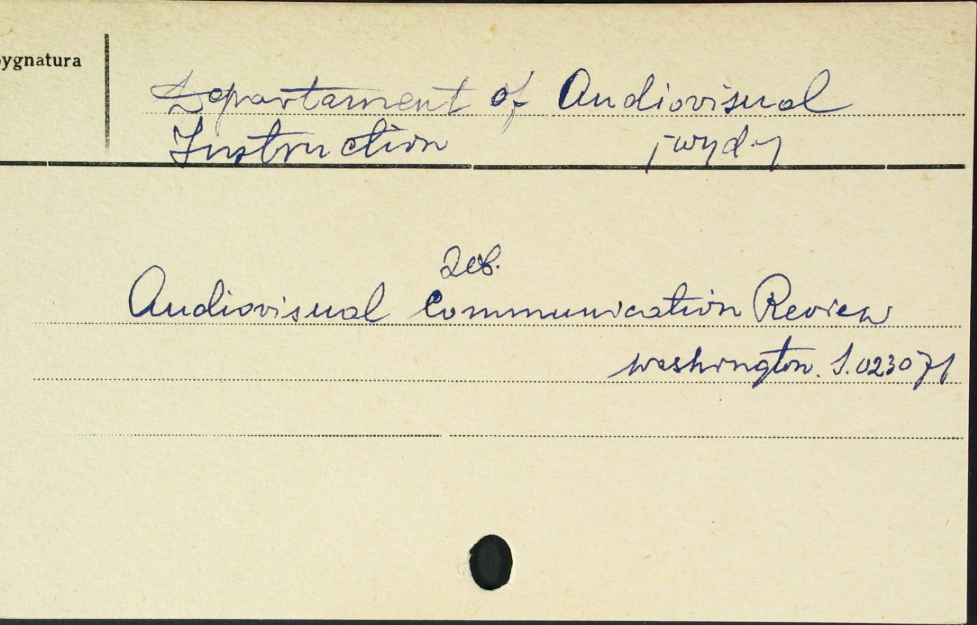 ygnatura
Departament of Audiovisual
Instruction [wyd.]
Zob.
Audiovisual Communication Review
Washington. S.023071